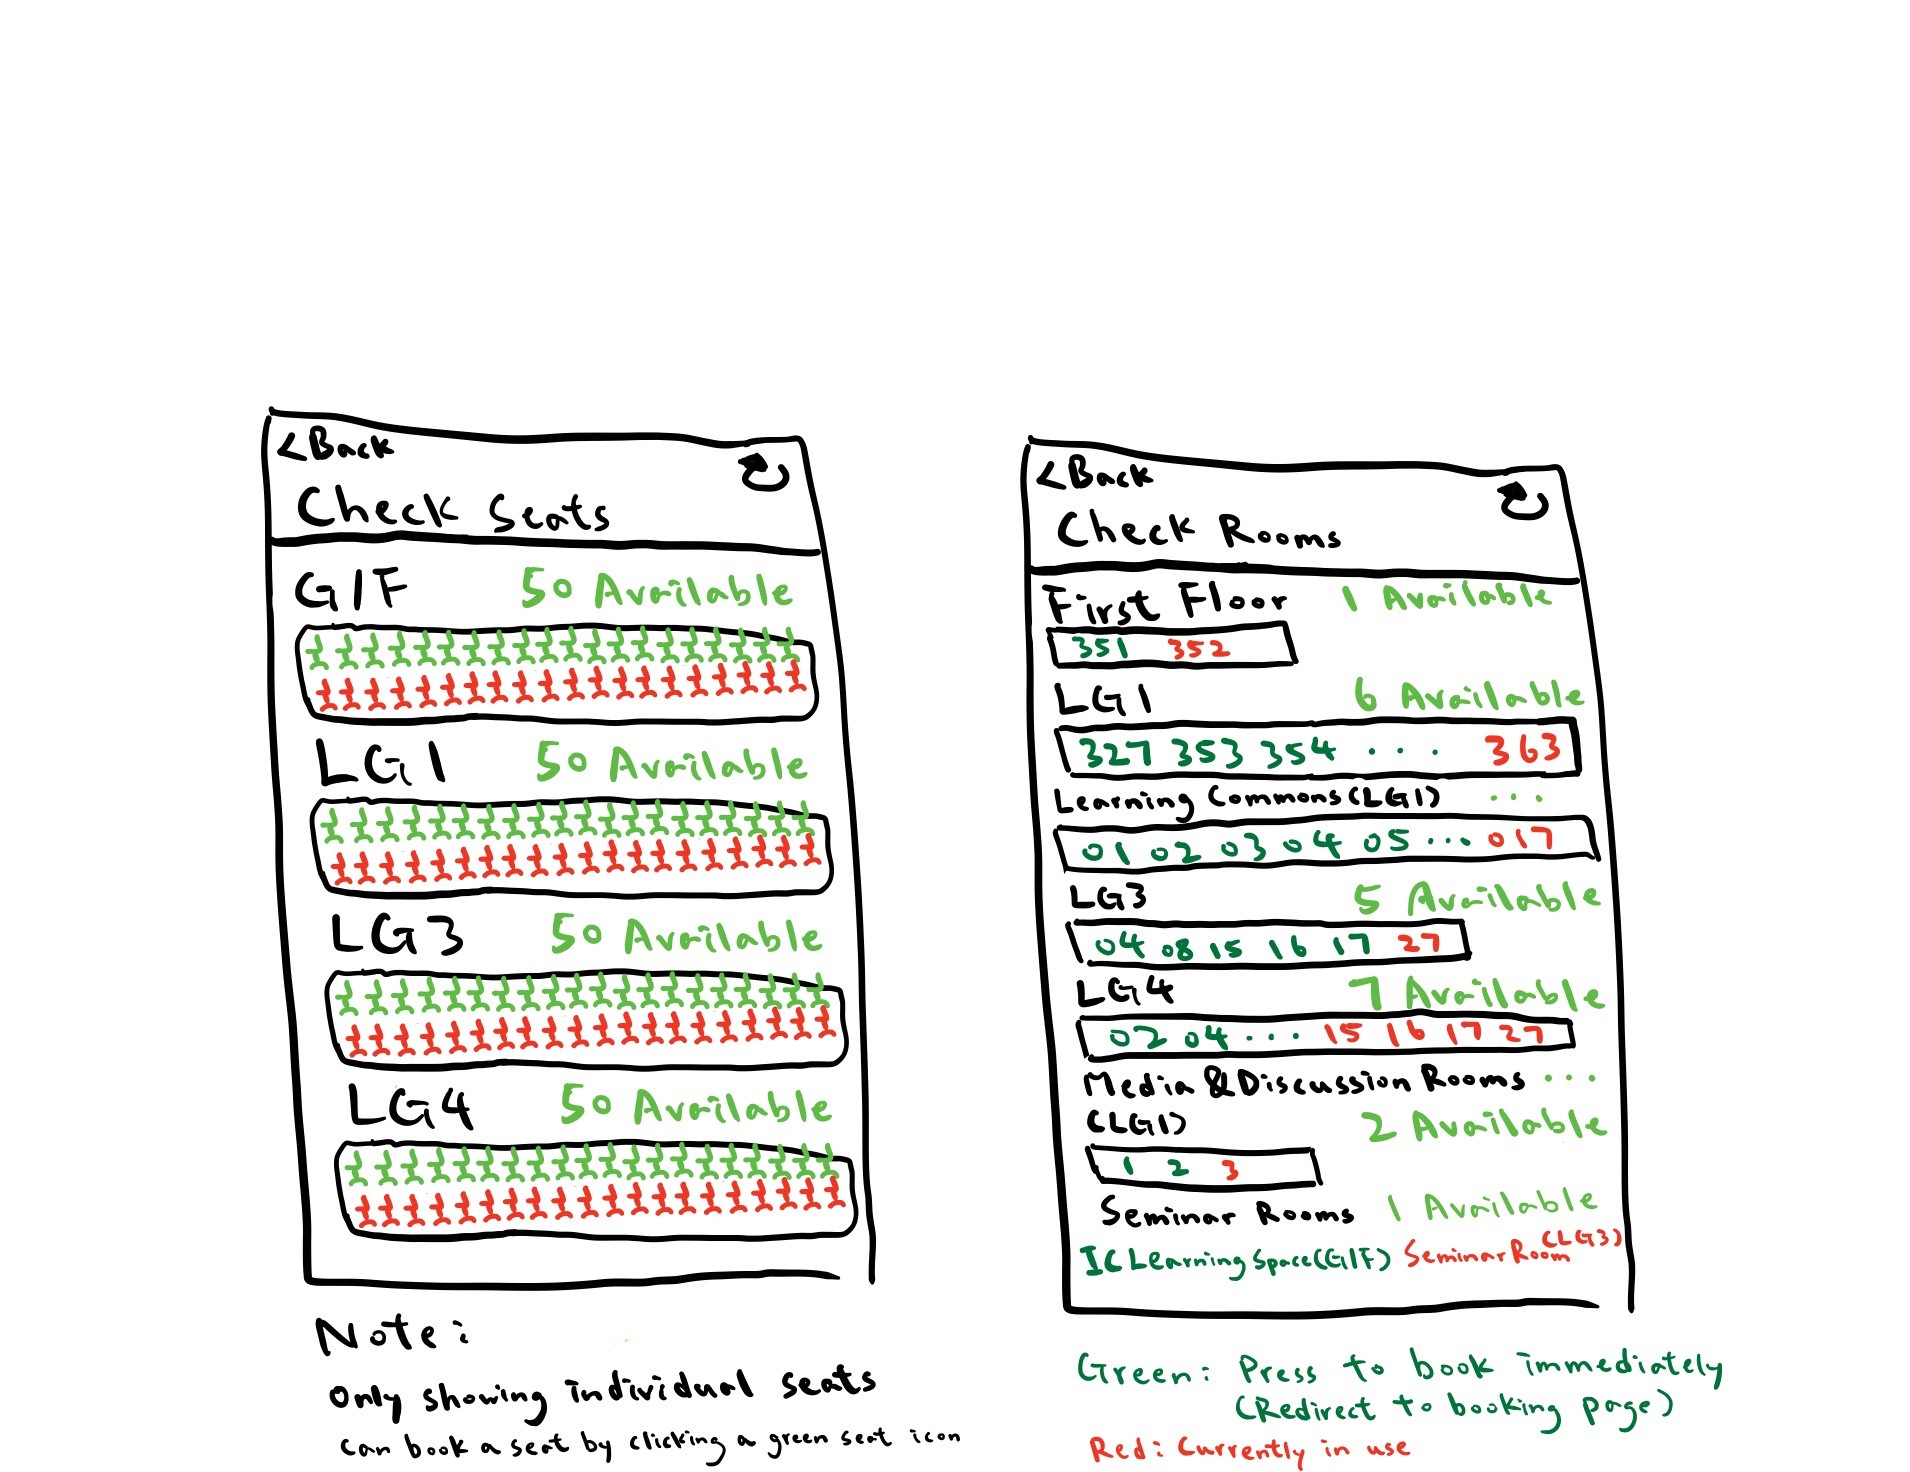 <Back
Check Seats
G/F 50 Available
LG1 50 Available
LG3 50 Available
LG4 50 Available
Note:
Only showing individual seats
Can book a seat by clicking a green seat icon
<Back
Check Rooms
First Floor 1 Available
351 352
LG1 6 Available
327 353 354 ... 363
Learning Commons (LG1) ...
01 02 03 04 05 ... 017
LG3 5 Available
04 08 15 16 17 27
LG4 7 Available
02 04 ... 15 16 17 27
Media & Discussion Rooms ...
(LG1) 2 Available
1 2 3
Seminar Rooms 1 Available
IC Learning Space (G/F) Seminar Room (LG3)
Green: Press to book immediately
(Redirect to booking page)
Red: Currently in use